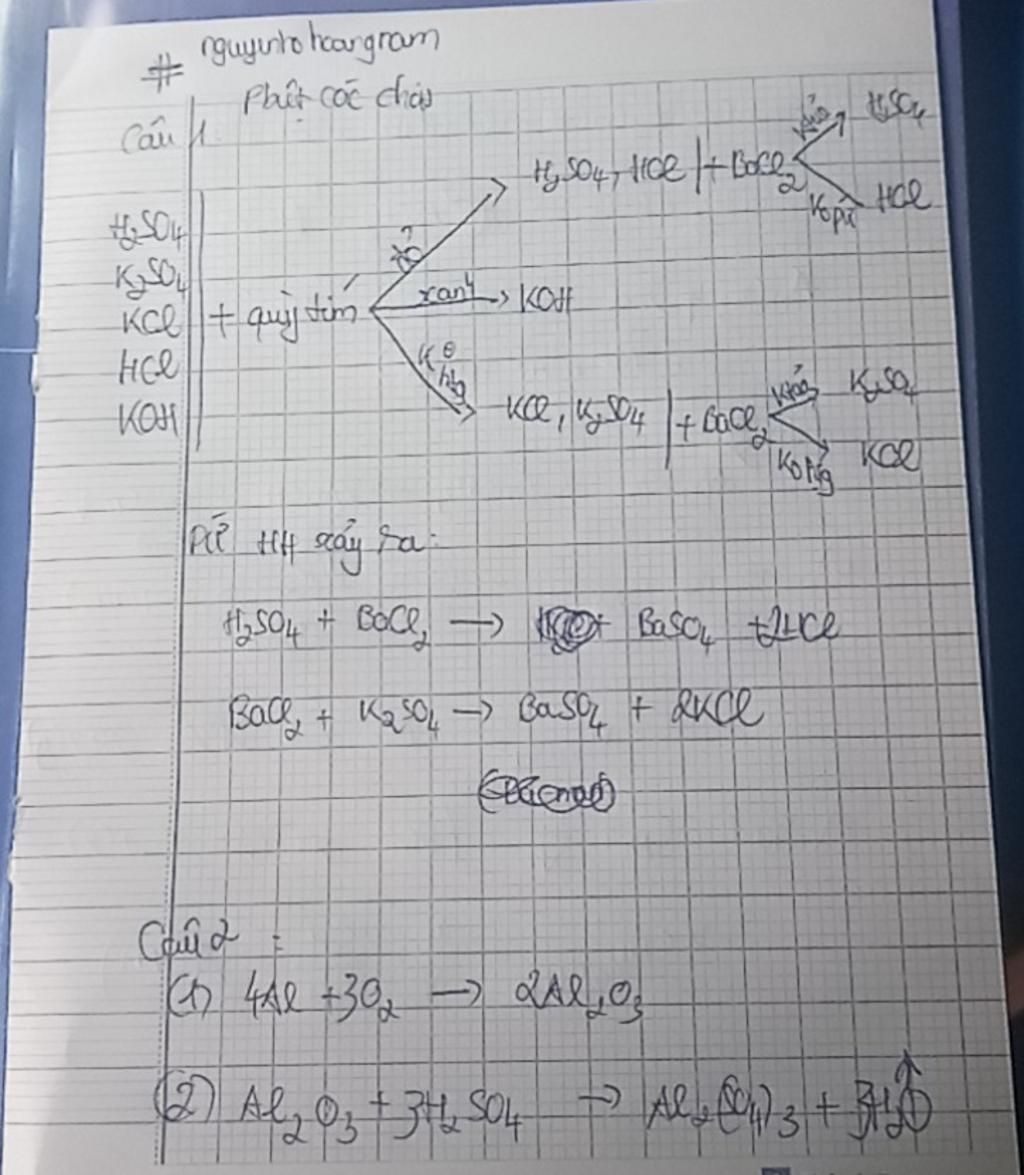 # nguyunto hoangnam
Câu 1 Phân các chấ
H₂SO₄
K₂SO₄
KCl
HCl
KOH
+ quỳ tím
đỏ
H₂SO₄, HCl | + BaCl₂
H₂SO₄
Ko pứ HCl
xanh KOH
Kº
KCl, K₂SO₄ | + BaCl₂
K₂SO₄
Ko KCl
Pt HH xảy ra:
H₂SO₄ + BaCl₂ → BaSO₄ + 2HCl
BaCl₂ + K₂SO₄ → BaSO₄ + 2KCl
Câu 2 :
(1) 4Al + 3O₂ → 2Al₂O₃
(2) Al₂O₃ + 3H₂SO₄ → Al₂(SO₄)₃ + 3H₂O↑